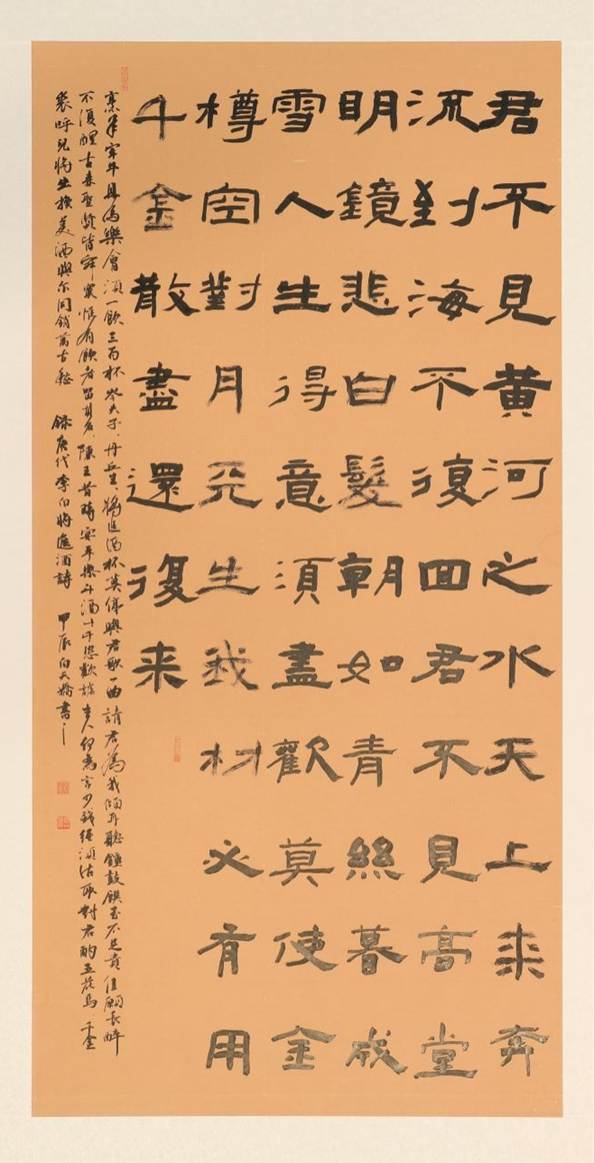 君不見黃河之水天上来奔
流到海不復回君不見高堂
明鏡悲白髮朝如青絲暮成
雪人生得意須盡歡莫使金
樽空對月天生我材必有用
千金散盡還復来
烹羊宰牛且為樂會須一飲三百杯岑夫子丹丘生將進酒杯莫停與君歌一曲請君為我傾耳聽鐘鼓饌玉不足貴但願長醉
不復醒古来聖賢皆寂寞惟有飲者留其名陳王昔時宴平樂斗酒十千恣歡謔主人何為言少錢徑須沽取對君酌五花馬千金
裘呼兒將出換美酒與尔同銷萬古愁 錄唐代李白將進酒詩 甲辰 書之